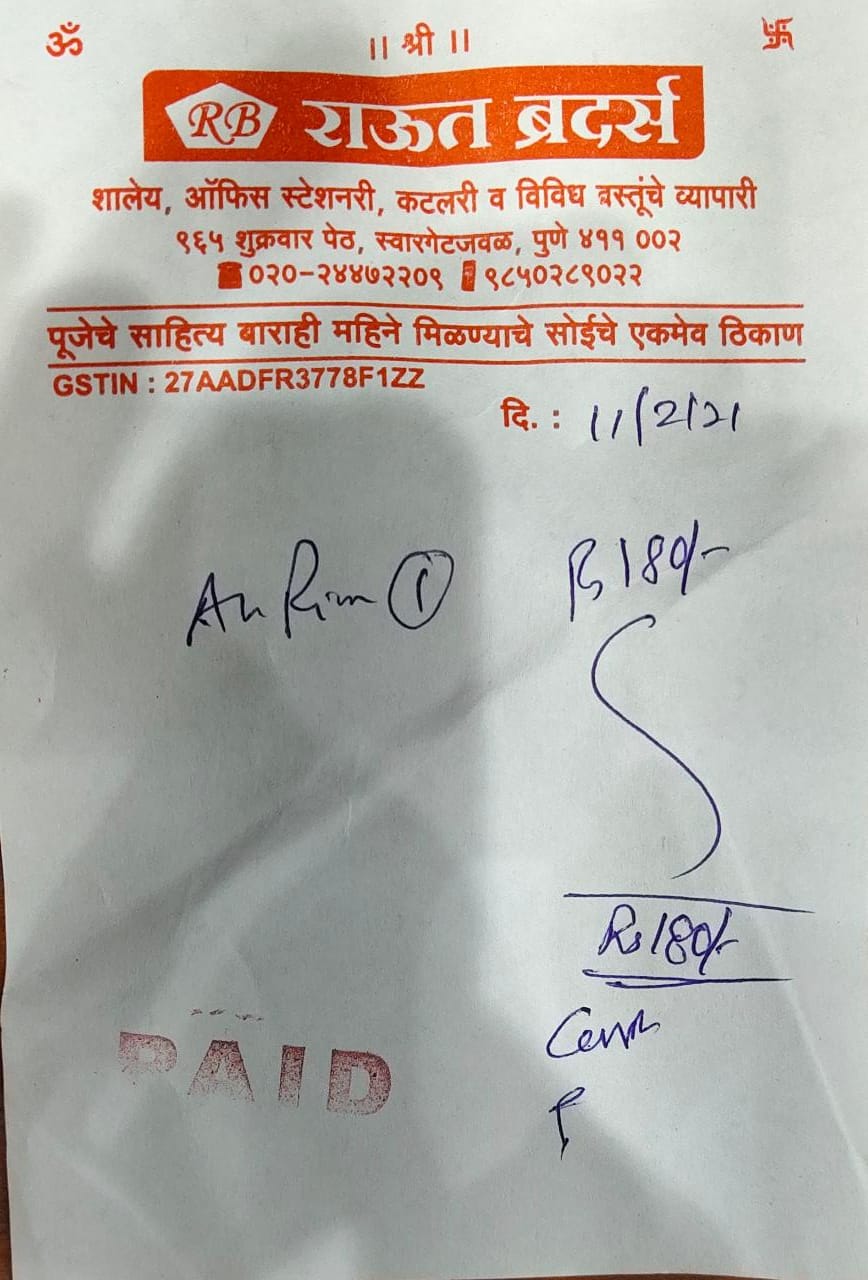 ॐ ॥ श्री ॥ 卐
RB राऊत ब्रदर्स
शालेय, ऑफिस स्टेशनरी, कटलरी व विविध वस्तूंचे व्यापारी
९६५ शुक्रवार पेठ, स्वारगेटजवळ, पुणे ४११ ००२
०२०-२४४७२२०९ ९८५०२८९०२२
पूजेचे साहित्य बाराही महिने मिळण्याचे सोईचे एकमेव ठिकाण
GSTIN : 27AADFR3778F1ZZ
दि. : 11/2/21
Rs 180/-
① 
Rs 180/-
PAID